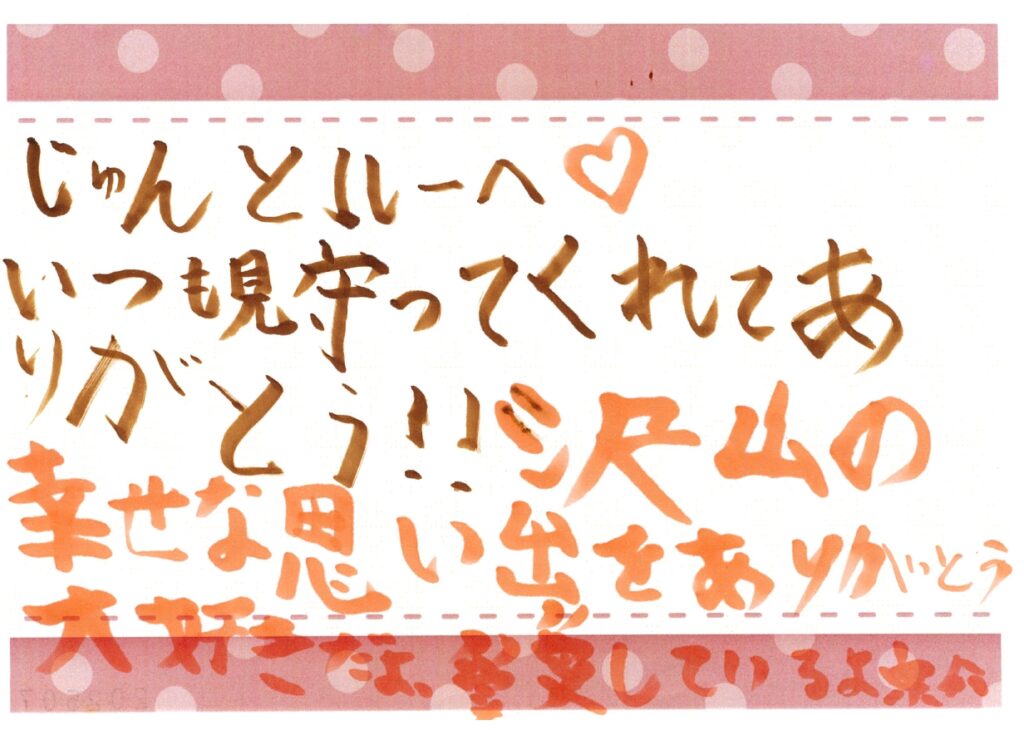 じゅんとルーへ♡
いつも見守ってくれてあ
りがとう!! 沢山の
幸せな思い出をありがとう
大好きだよ、愛しているよ